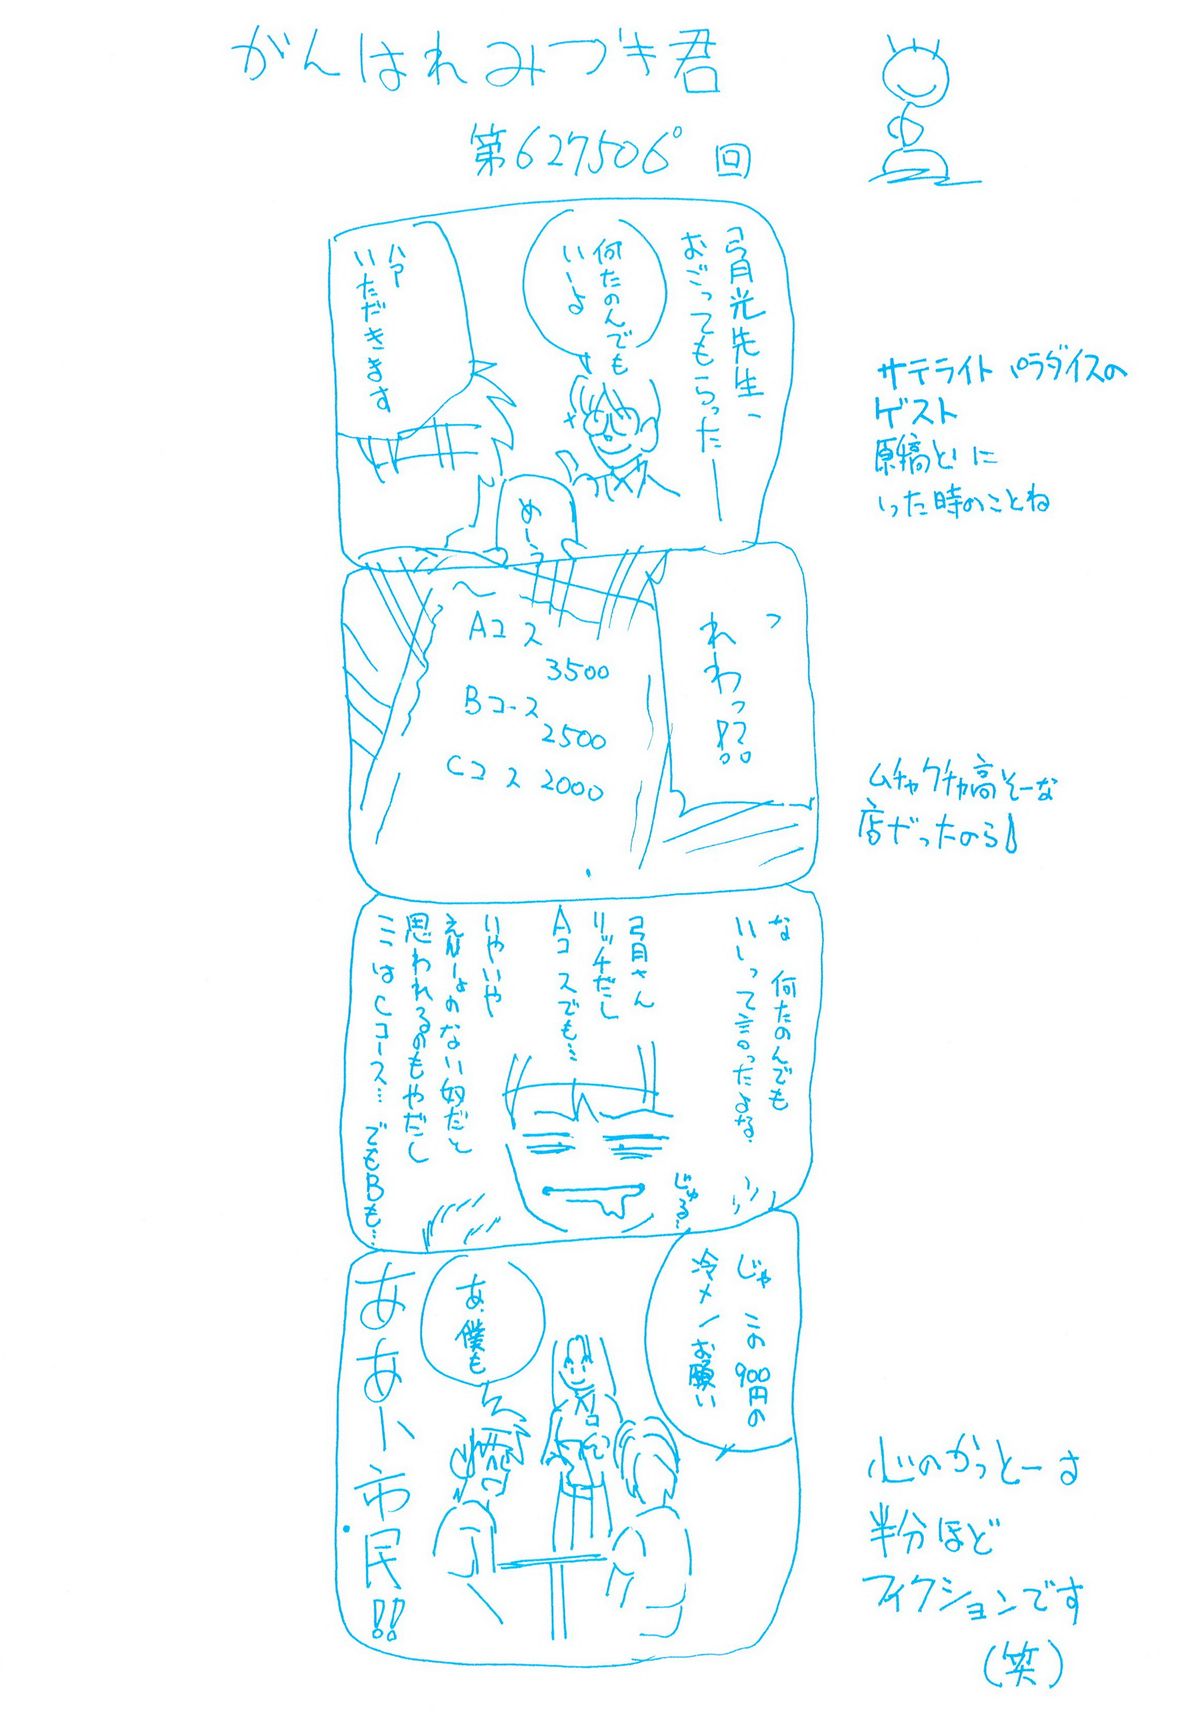 がんばれみづき君
第627506回
弓月光先生、
おごってもらったー
何たのんでも
いーよ
ハァ
いただきます
めーう
サテライトパラダイスの
ゲスト
原稿とりに
いった時のことね
Aコース
3500
Bコース
2500
Cコース 2000
っ
れわっ!?
ムチャクチャ高そーな
店だったのら
な 何たのんでも
いいって言ったよな
弓月さん
リッチだし
Aコースでも…
いやいや
えんりょのない奴だと
思われるのもやだし
ここはCコース… でもBも…
じゅる…
じゃ この900円の
冷メンお願い
あ、僕も
ああ、市民!!
心のかっとーは
半分ほど
フィクションです
(笑)